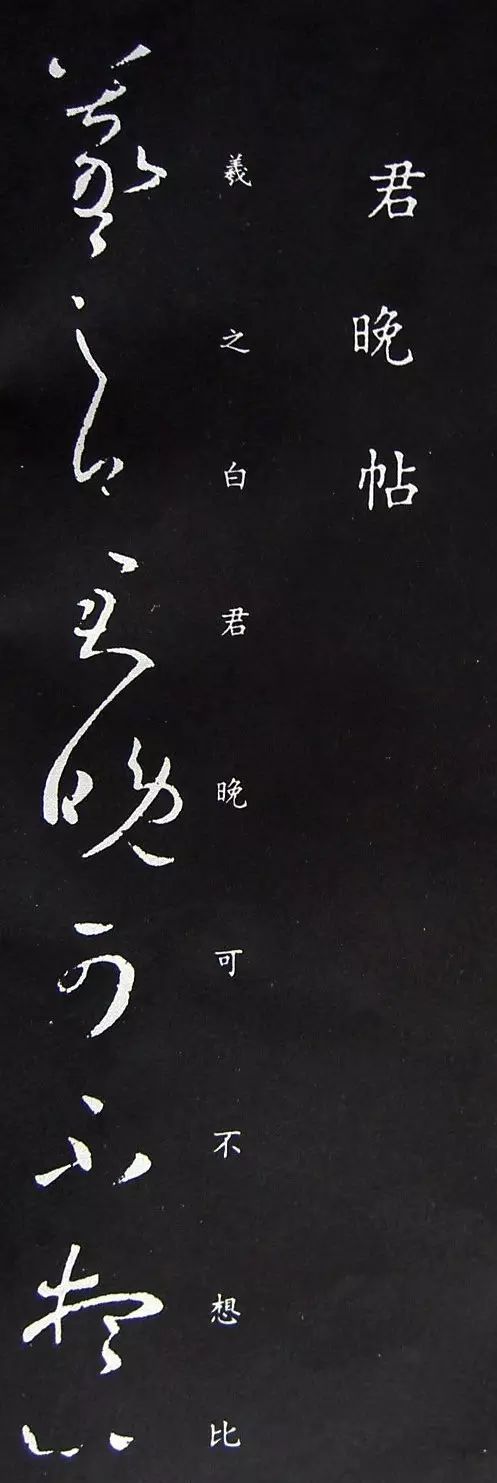 君晚帖
羲之白君晚可不想比
羲之白君晚可不想比